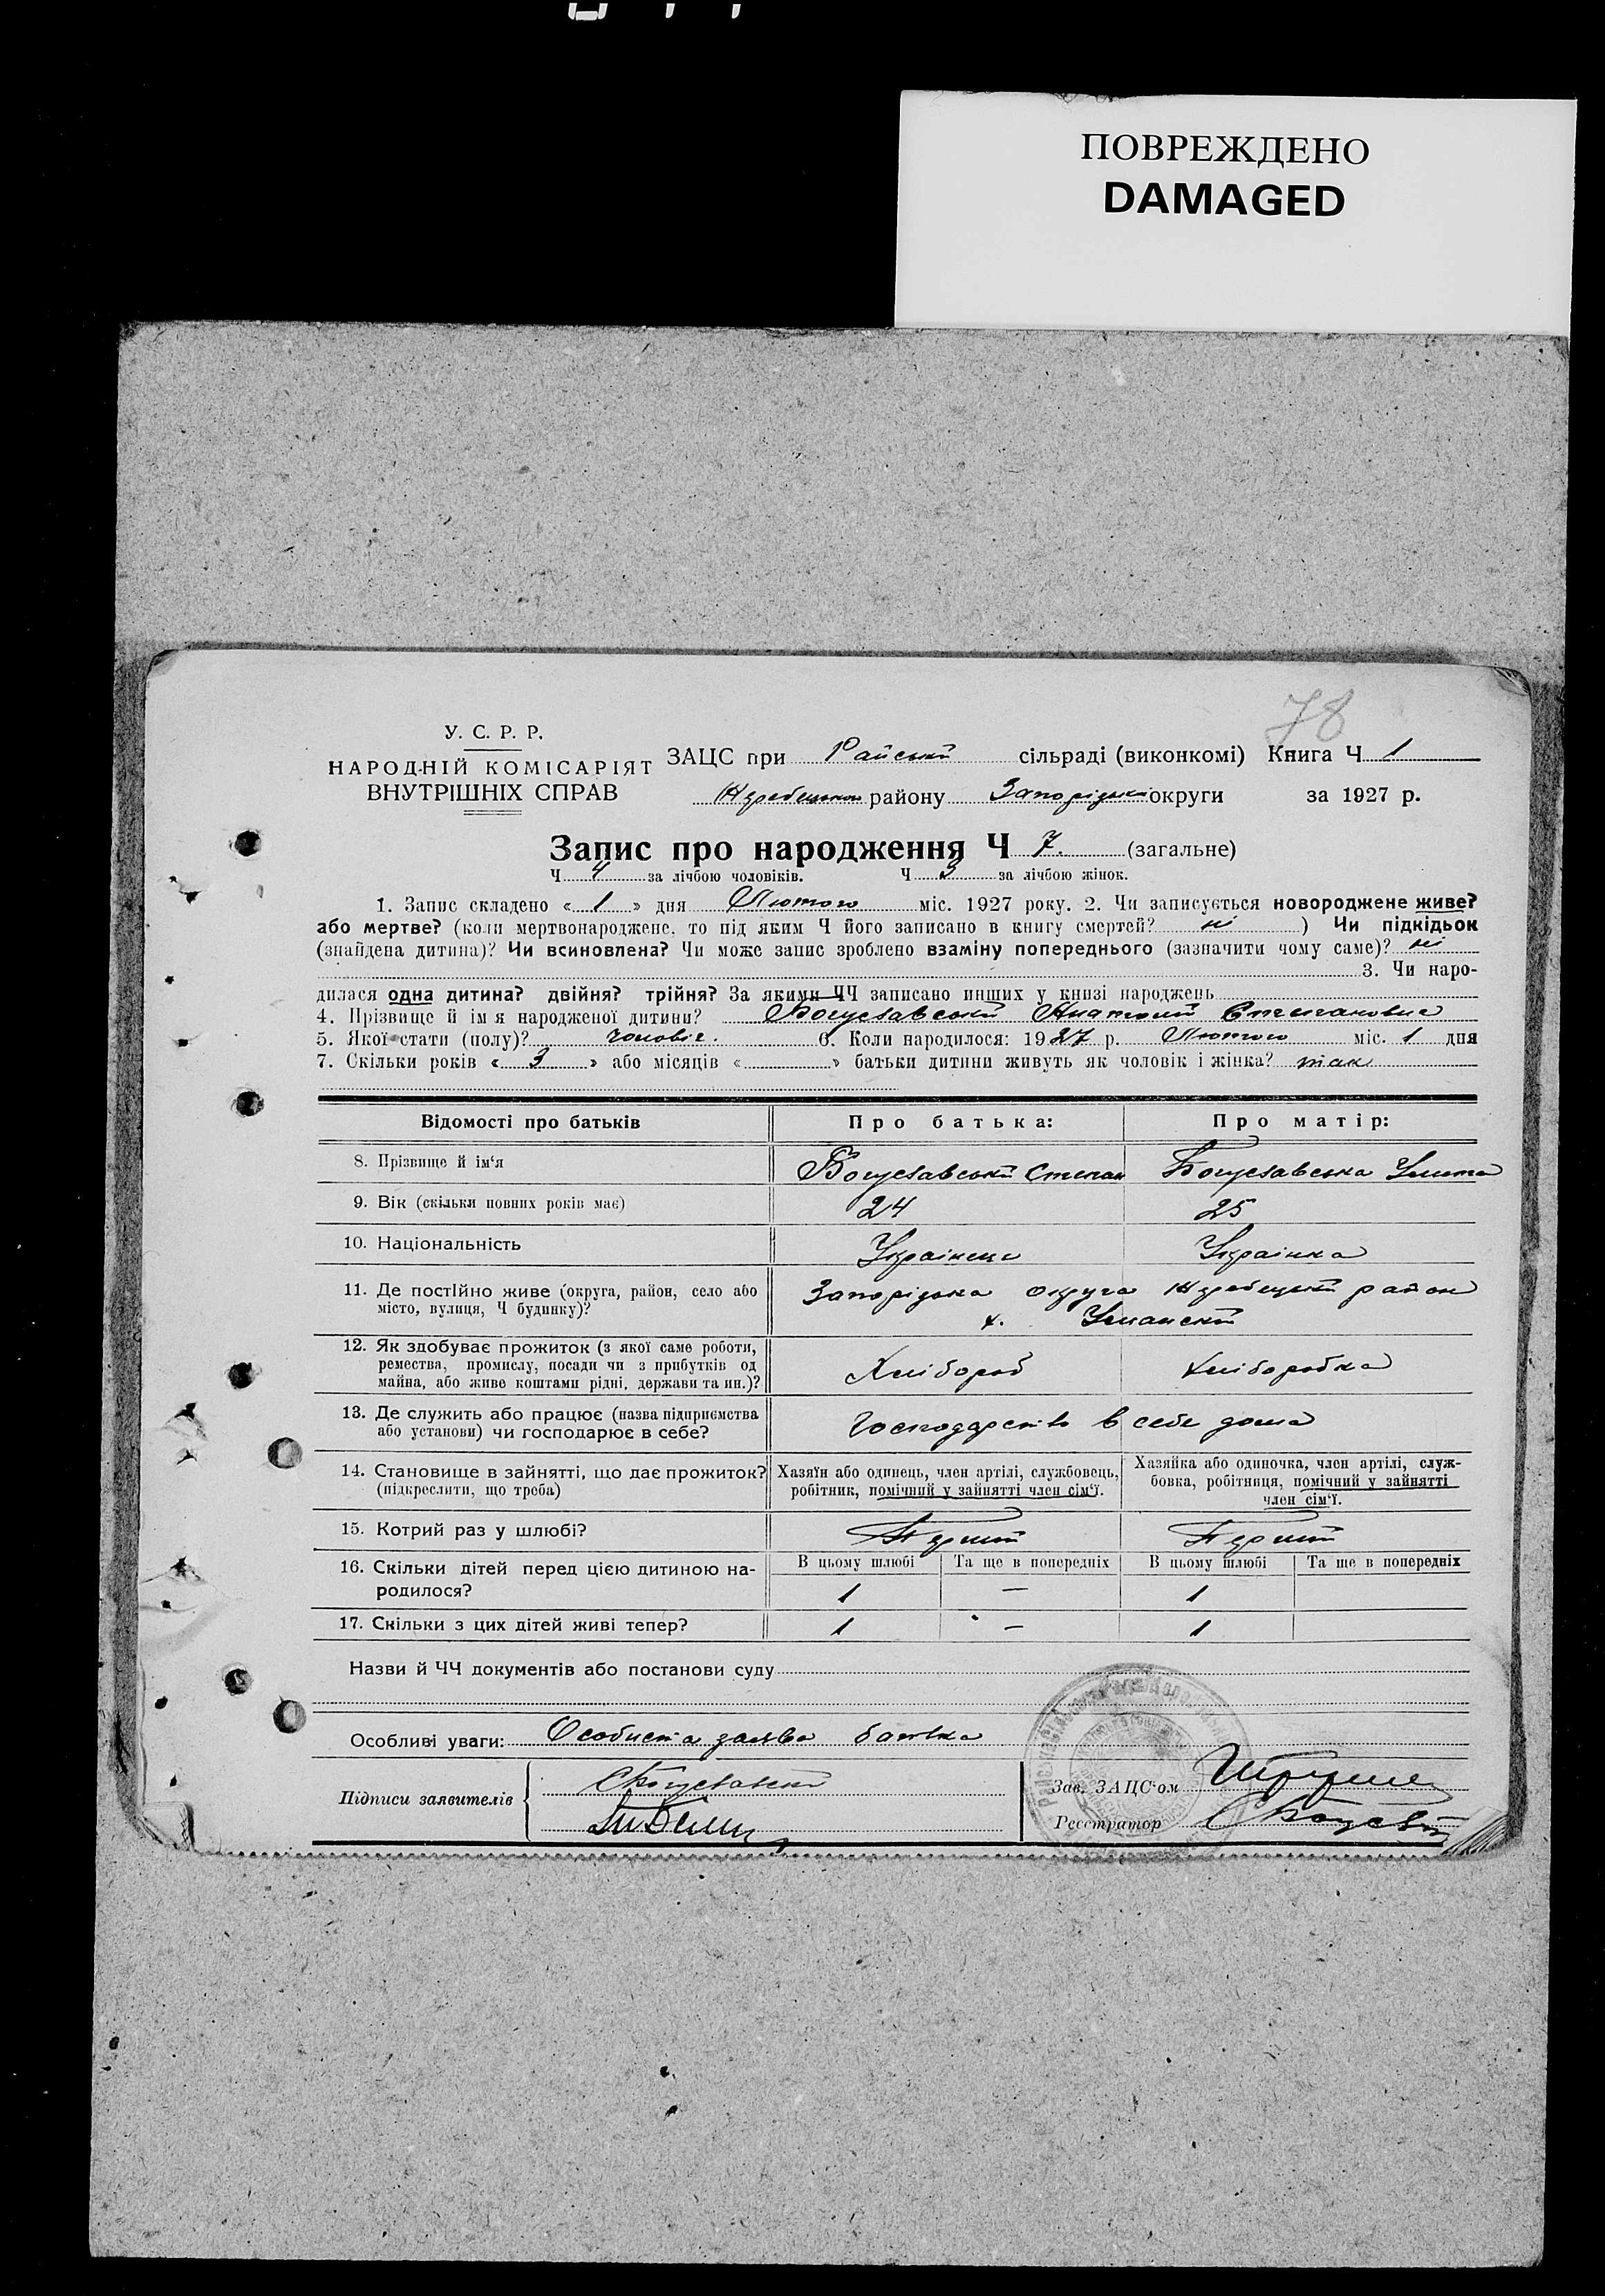 ПОВРЕЖДЕНО
DAMAGED
78
У. С. Р. Р.
НАРОДНІЙ КОМІСАРІЯТ
ВНУТРІШНІХ СПРАВ
ЗАЦС при Райській сільраді (виконкомі) Книга Ч 1
району Запорізької округи за 1927 р.
Запис про народження Ч 7. (загальне)
Ч 4 за лічбою чоловіків. Ч 3 за лічбою жінок.
1. Запис складено « 1 » дня Лютого міс. 1927 року. 2. Чи записується новороджене живе?
або мертве? (коли мертвонароджене, то під яким Ч його записано в книгу смертей? ні ) Чи підкідьок
(знайдена дитина)? Чи всиновлена? Чи може запис зроблено взаміну попереднього (зазначити чому саме)? ні
3. Чи наро-
дилася одна дитина? двійня? трійня? За якими ЧЧ записано инших у книзі народжень
4. Прізвище й ім я народженої дитини? Богуславський Анатолій Степанович
5. Якої стати (полу)? чоловіч. 6. Коли народилося: 1927 р. Лютого міс. 1 дня
7. Скільки років « 3 » або місяців « » батьки дитини живуть як чоловік і жінка? так
Відомості про батьків Про батька: Про матір:
8. Прізвище й ім'я Богуславський Степан Богуславська
9. Вік (скільки повних років має) 24 25
10. Національність Українець Українка
11. Де постійно живе (округа, район, село або Запорізька округа Жеребецький район
місто, вулиця, Ч будинку)? х. Уманский
12. Як здобуває прожиток (з якої саме роботи,
ремества, промислу, посади чи з прибутків од Хлібороб Хліборобка
майна, або живе коштами рідні, держави та ин.)?
13. Де служить або працює (назва підприємства Господарство в себе дома
або установи) чи господарює в себе?
14. Становище в зайнятті, що дає прожиток? Хазяїн або одинець, член артілі, службовець, Хазяйка або одиночка, член артілі, служ-
(підкреслити, що треба) робітник, помічний у зайнятті член сім'ї. бовка, робітниця, помічний у зайнятті
член сім'ї.
15. Котрий раз у шлюбі? Перший Перший
В цьому шлюбі Та ще в попередніх В цьому шлюбі Та ще в попередніх
16. Скільки дітей перед цією дитиною на-
родилося? 1 — 1
17. Скільки з цих дітей живі тепер? 1 — 1
Назви й ЧЧ документів або постанови суду
Особливі уваги: Особиста заява батька
Підписи заявителів СБогуславский
Зав. ЗАЦС'ом
Реєстратор